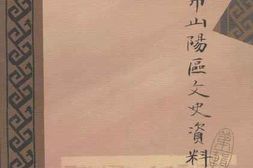 市山陽區文史資料